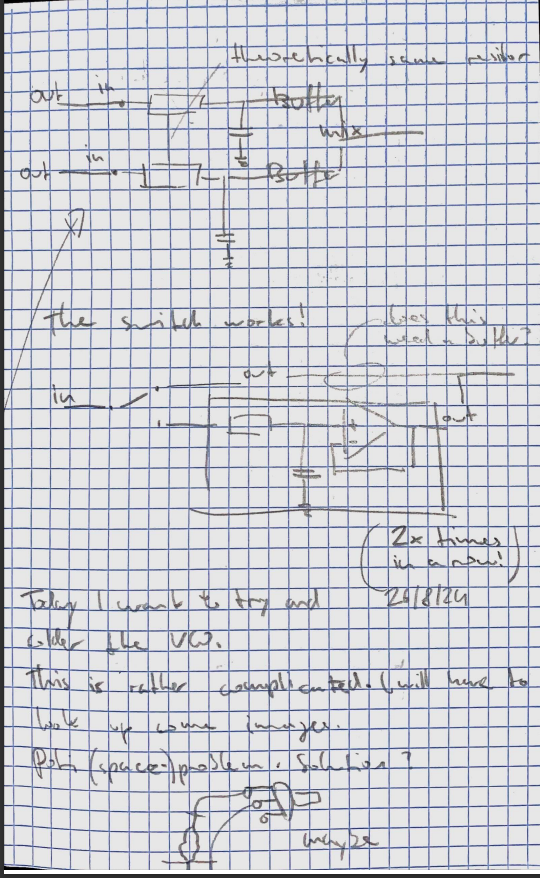 theoretically same resistor
out in Buffer
mix
out in Buffer
The switch works!
does this
need a buffer?
out
in
out
+
-
(2x times
in a row!)
Today I want to try and
26/8/24
solder the VCO.
This is rather complicated. I will have to
look up some images.
Pot (space-)problem. Solution?
maybe